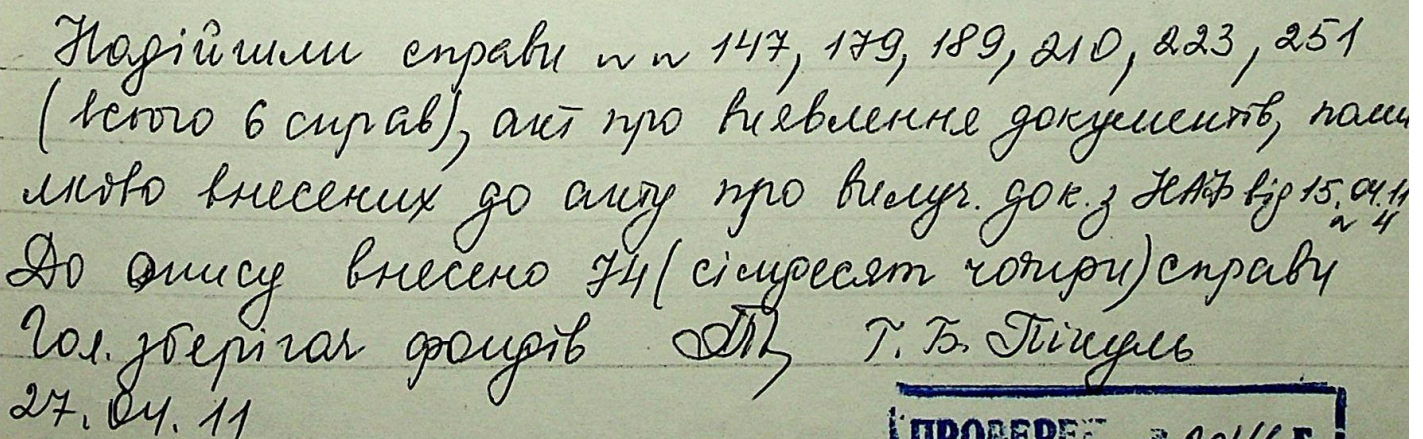 Надійшли справи № № 147, 179, 189, 210, 223, 251
(всього 6 справ), акт про виявлення документів, поми
лково внесених до акту про вилуч. док. з НАФ від 15.04.11
№ 4
До опису внесено 74 (сімдесят чотири) справи
Гол. зберігач фондів Г. Б. Пікуль
27.04.11